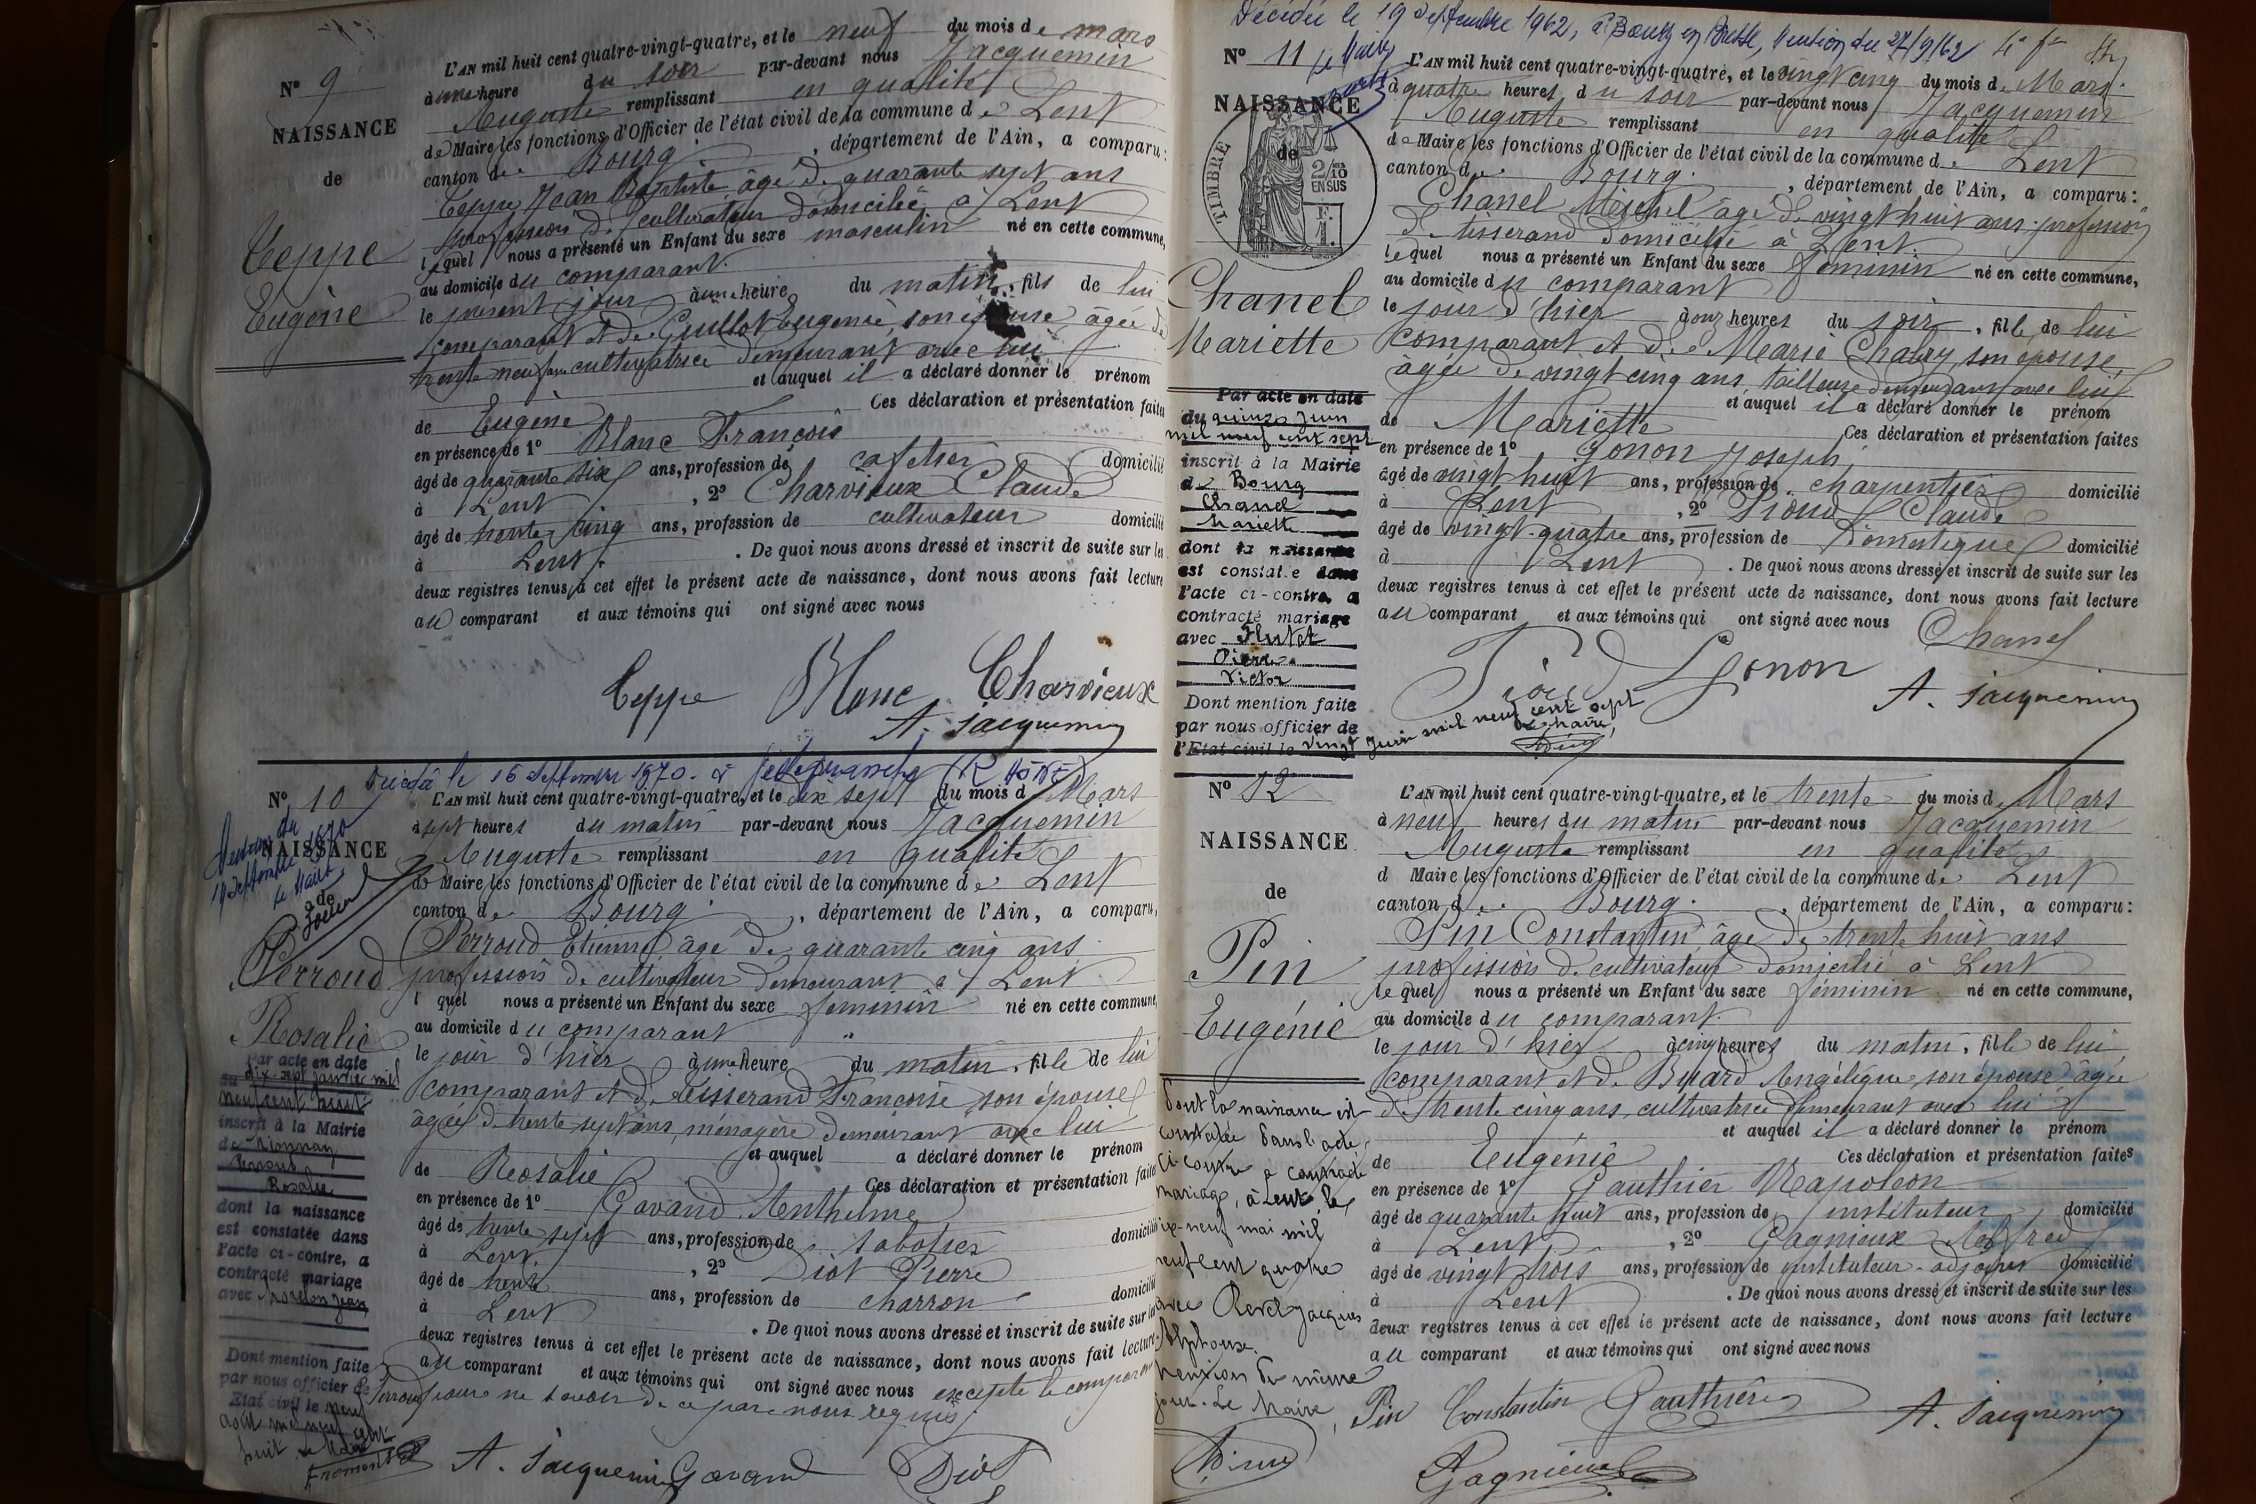 N° 9
NAISSANCE
de
Teppe
Eugène
L'AN mil huit cent quatre-vingt-quatre, et le neuf du mois de mars
à une heure du soir par-devant nous Jacquemin
Auguste remplissant en qualité
de Maire les fonctions d'Officier de l'état civil de la commune de Lent
canton de Bourg, département de l'Ain, a comparu:
Teppe Jean Baptiste âgé de quarante sept ans
profession de cultivateur domicilié à Lent
lequel nous a présenté un Enfant du sexe masculin né en cette commune,
au domicile du comparant.
le présent jour à une heure du matin, fils de lui
comparant et de Guillot Eugénie, son épouse âgée de
trente neuf ans cultivatrice demeurant avec lui
et auquel il a déclaré donner le prénom
de Eugène Ces déclaration et présentation faites
en présence de 1° Blanc François
âgé de quarante six ans, profession de cafetier domicilié
à Lent, 2° Charvieux Claude
âgé de trente cinq ans, profession de cultivateur domicilié
à Lent. De quoi nous avons dressé et inscrit de suite sur les
deux registres tenus à cet effet le présent acte de naissance, dont nous avons fait lecture
au comparant et aux témoins qui ont signé avec nous
Teppe Blanc Charvieux
A. Jacquemin
Décédée le 16 Septembre 1970 à Villefranche (RHÔNE)
N° 10
NAISSANCE
19 Septembre 1970
Le Maire
de
Perroud
Rosalie
Par acte en date
du dix-sept janvier mil
neuf cent huit
inscrit à la Mairie
de Mionnay
Perroud
Rosalie
dont la naissance
est constatée dans
l'acte ci-contre, a
contracté mariage
avec Jean
Dont mention faite
par nous officier de
l'Etat civil le neuf
août mil neuf cent
huit Le Maire
L'AN mil huit cent quatre-vingt-quatre, et le dix sept du mois de Mars
à sept heures du matin par-devant nous Jacquemin
Auguste remplissant en qualité
de Maire les fonctions d'Officier de l'état civil de la commune de Lent
canton de Bourg, département de l'Ain, a comparu,
Perroud Etienne âgé de quarante cinq ans
profession de cultivateur demeurant à Lent
lequel nous a présenté un Enfant du sexe féminin né en cette commune,
au domicile du comparant
le jour d'hier à une heure du matin, fille de lui
comparant et de Tisserand Françoise son épouse
âgée de trente sept ans, ménagère demeurant avec lui
et auquel a déclaré donner le prénom
de Rosalie Ces déclaration et présentation faites
en présence de 1° Gavand Anthelme
âgé de trente sept ans, profession de sabotier domicilié
à Lent, 2° Diot Pierre
âgé de trente ans, profession de charron domicilié
à Lent. De quoi nous avons dressé et inscrit de suite sur les
deux registres tenus à cet effet le présent acte de naissance, dont nous avons fait lecture
au comparant et aux témoins qui ont signé avec nous excepté le comparant
Perroud pour ne savoir de ce par nous requis
A. Jacquemin Gavand Diot
Décédée le 19 Septembre 1962, à Bourg en Bresse, Mention du 27/9/62
N° 11
NAISSANCE
de
TIMBRE
2/10 EN SUS
Chanel
Mariette
Par acte en date
du quinze Juin
mil neuf cent sept
inscrit à la Mairie
de Bourg
Chanel
Mariette
dont la naissance
est constatée dans
l'acte ci-contre, a
contracté mariage
avec Flutet
Pierre
Victor
Dont mention faite
par nous officier de
l'Etat civil le vingt Juin mil neuf cent sept
Le Maire
L'AN mil huit cent quatre-vingt-quatre, et le vingt cinq du mois de Mars
à quatre heures du soir par-devant nous Jacquemin
Auguste remplissant en qualité
de Maire les fonctions d'Officier de l'état civil de la commune de Lent
canton de Bourg, département de l'Ain, a comparu:
Chanel Michel âgé de vingt huit ans profession
de tisserand domicilié à Lent.
lequel nous a présenté un Enfant du sexe féminin né en cette commune,
au domicile du comparant
le jour d'hier à onze heures du soir, fille de lui
comparant et de Marie Chabry, son épouse,
âgée de vingt cinq ans, tailleuse demeurant avec lui
et auquel il a déclaré donner le prénom
de Mariette Ces déclaration et présentation faites
en présence de 1° Gonon Joseph,
âgé de vingt huit ans, profession de charpentier domicilié
à Lent, 2° Pioud Claude
âgé de vingt-quatre ans, profession de Domestique domicilié
à Lent. De quoi nous avons dressé et inscrit de suite sur les
deux registres tenus à cet effet le présent acte de naissance, dont nous avons fait lecture
au comparant et aux témoins qui ont signé avec nous Chanel
Pioud Gonon
A. Jacquemin
N° 12
NAISSANCE
de
Pin
Eugénie
Dont la naissance est
constatée dans l'acte
ci-contre a contracté
mariage, à Lent, le
dix-neuf mai mil
neuf cent quatre
avec Revel Jacques
Alphonse.
Mention du même
jour. Le Maire,
L'AN mil huit cent quatre-vingt-quatre, et le trente du mois de Mars
à neuf heures du matin par-devant nous Jacquemin
Auguste remplissant en qualité
d Maire les fonctions d'Officier de l'état civil de la commune de Lent
canton de Bourg, département de l'Ain, a comparu:
Pin Constantin, âgé de trente huit ans
profession de cultivateur domicilié à Lent
lequel nous a présenté un Enfant du sexe féminin né en cette commune,
au domicile du comparant.
le jour d'hier à cinq heures du matin, fille de lui
comparant et de Buard Angélique son épouse âgée
de trente cinq ans, cultivatrice demeurant avec lui
et auquel il a déclaré donner le prénom
de Eugénie Ces déclaration et présentation faites
en présence de 1° Gauthier Napoléon
âgé de quarante huit ans, profession de instituteur domicilié
à Lent, 2° Gagnieux Alfred
âgé de vingt trois ans, profession de instituteur-adjoint domicilié
à Lent. De quoi nous avons dressé et inscrit de suite sur les
deux registres tenus à cet effet le présent acte de naissance, dont nous avons fait lecture
au comparant et aux témoins qui ont signé avec nous
Pin Constantin Gauthier A. Jacquemin
Gagnieux